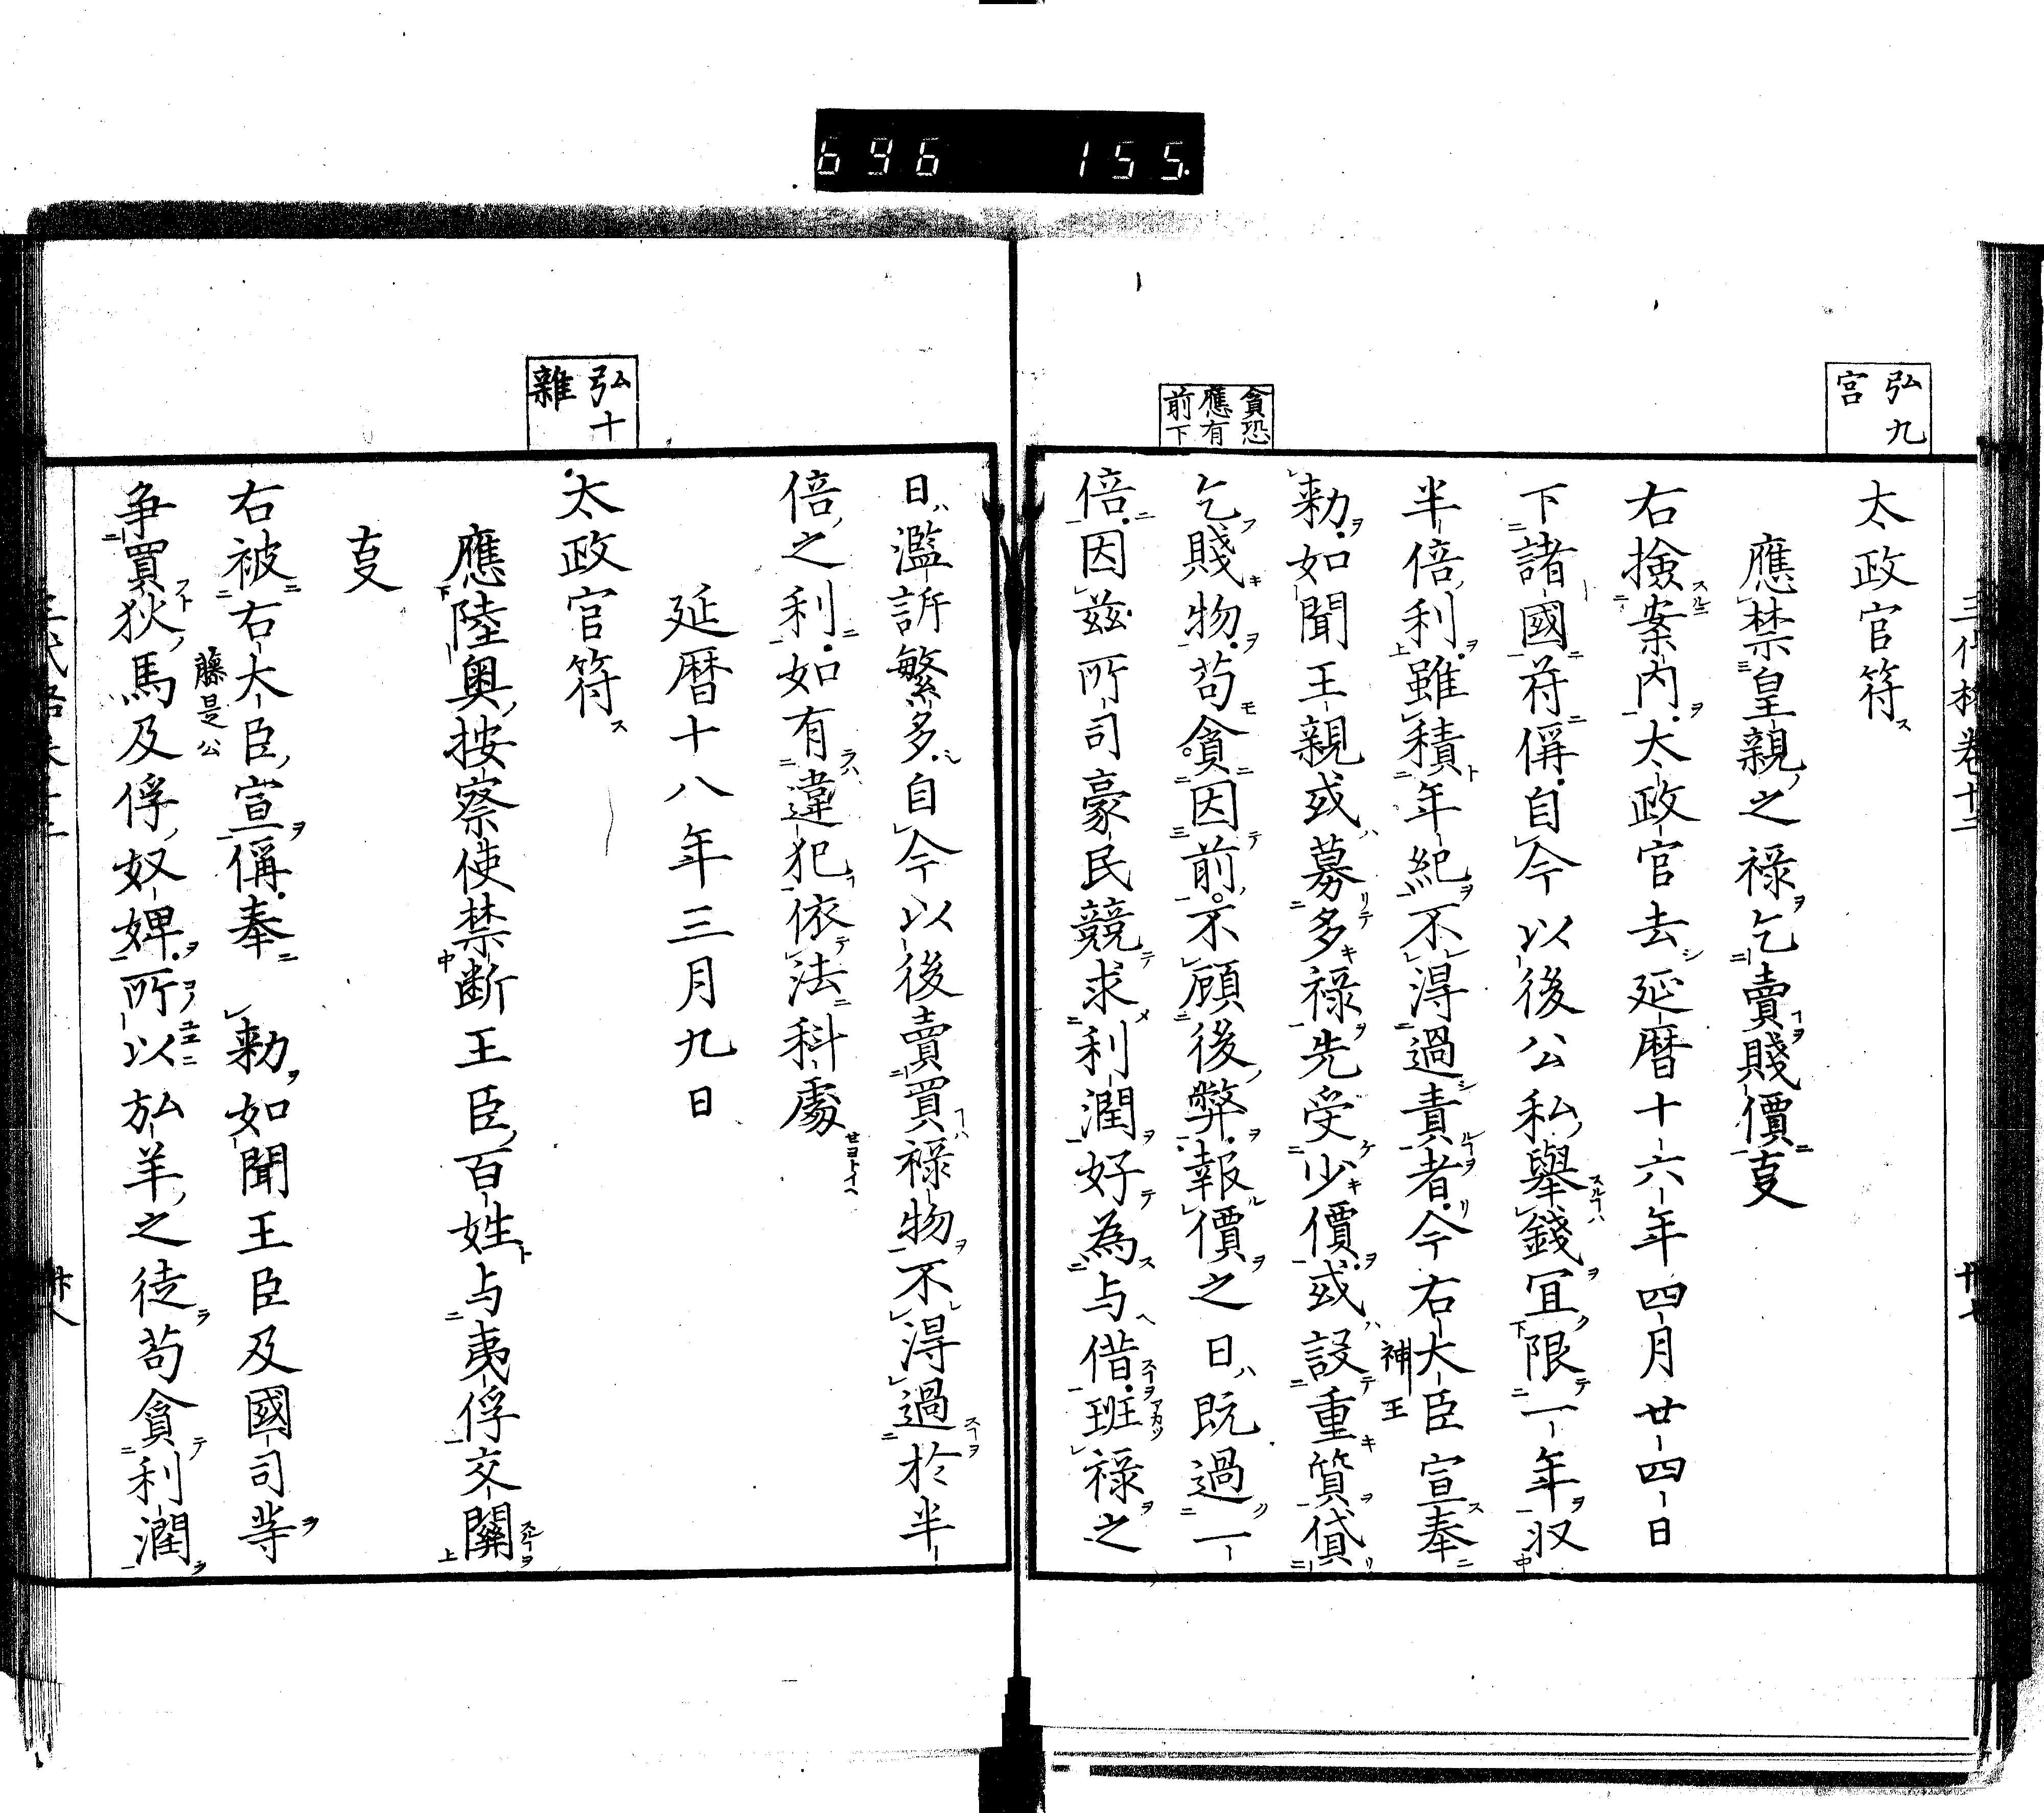 696 155.
三代格卷十二 卅七
弘九
宮
太政官符
應禁皇親之祿乞賣賤價支
右撿案內太政官去延暦十六年四月廿四日
下諸國符偁自今以後公私舉錢冝限一年収
半倍利雖積年紀不淂過責者今右大臣宣奉
神王
勅如聞王親或募多祿先受少價或設重質貸
乞賤物苟貪因前不顧後弊報價之日既過一
貪恐
應有
前下
倍因玆所司豪民競求利潤好為与借班祿之
日濫訴繁多自今以後賣買祿物不淂過於半
倍之利如有違犯依法科處
延暦十八年三月九日
弘十
雜
太政官符
應陸奥按察使禁断王臣百姓与夷俘交關
支
右被右大臣宣偁奉 勅如聞王臣及國司等
藤是公
争買狄馬及俘奴婢所以𢪸羊之徒苟貪利潤